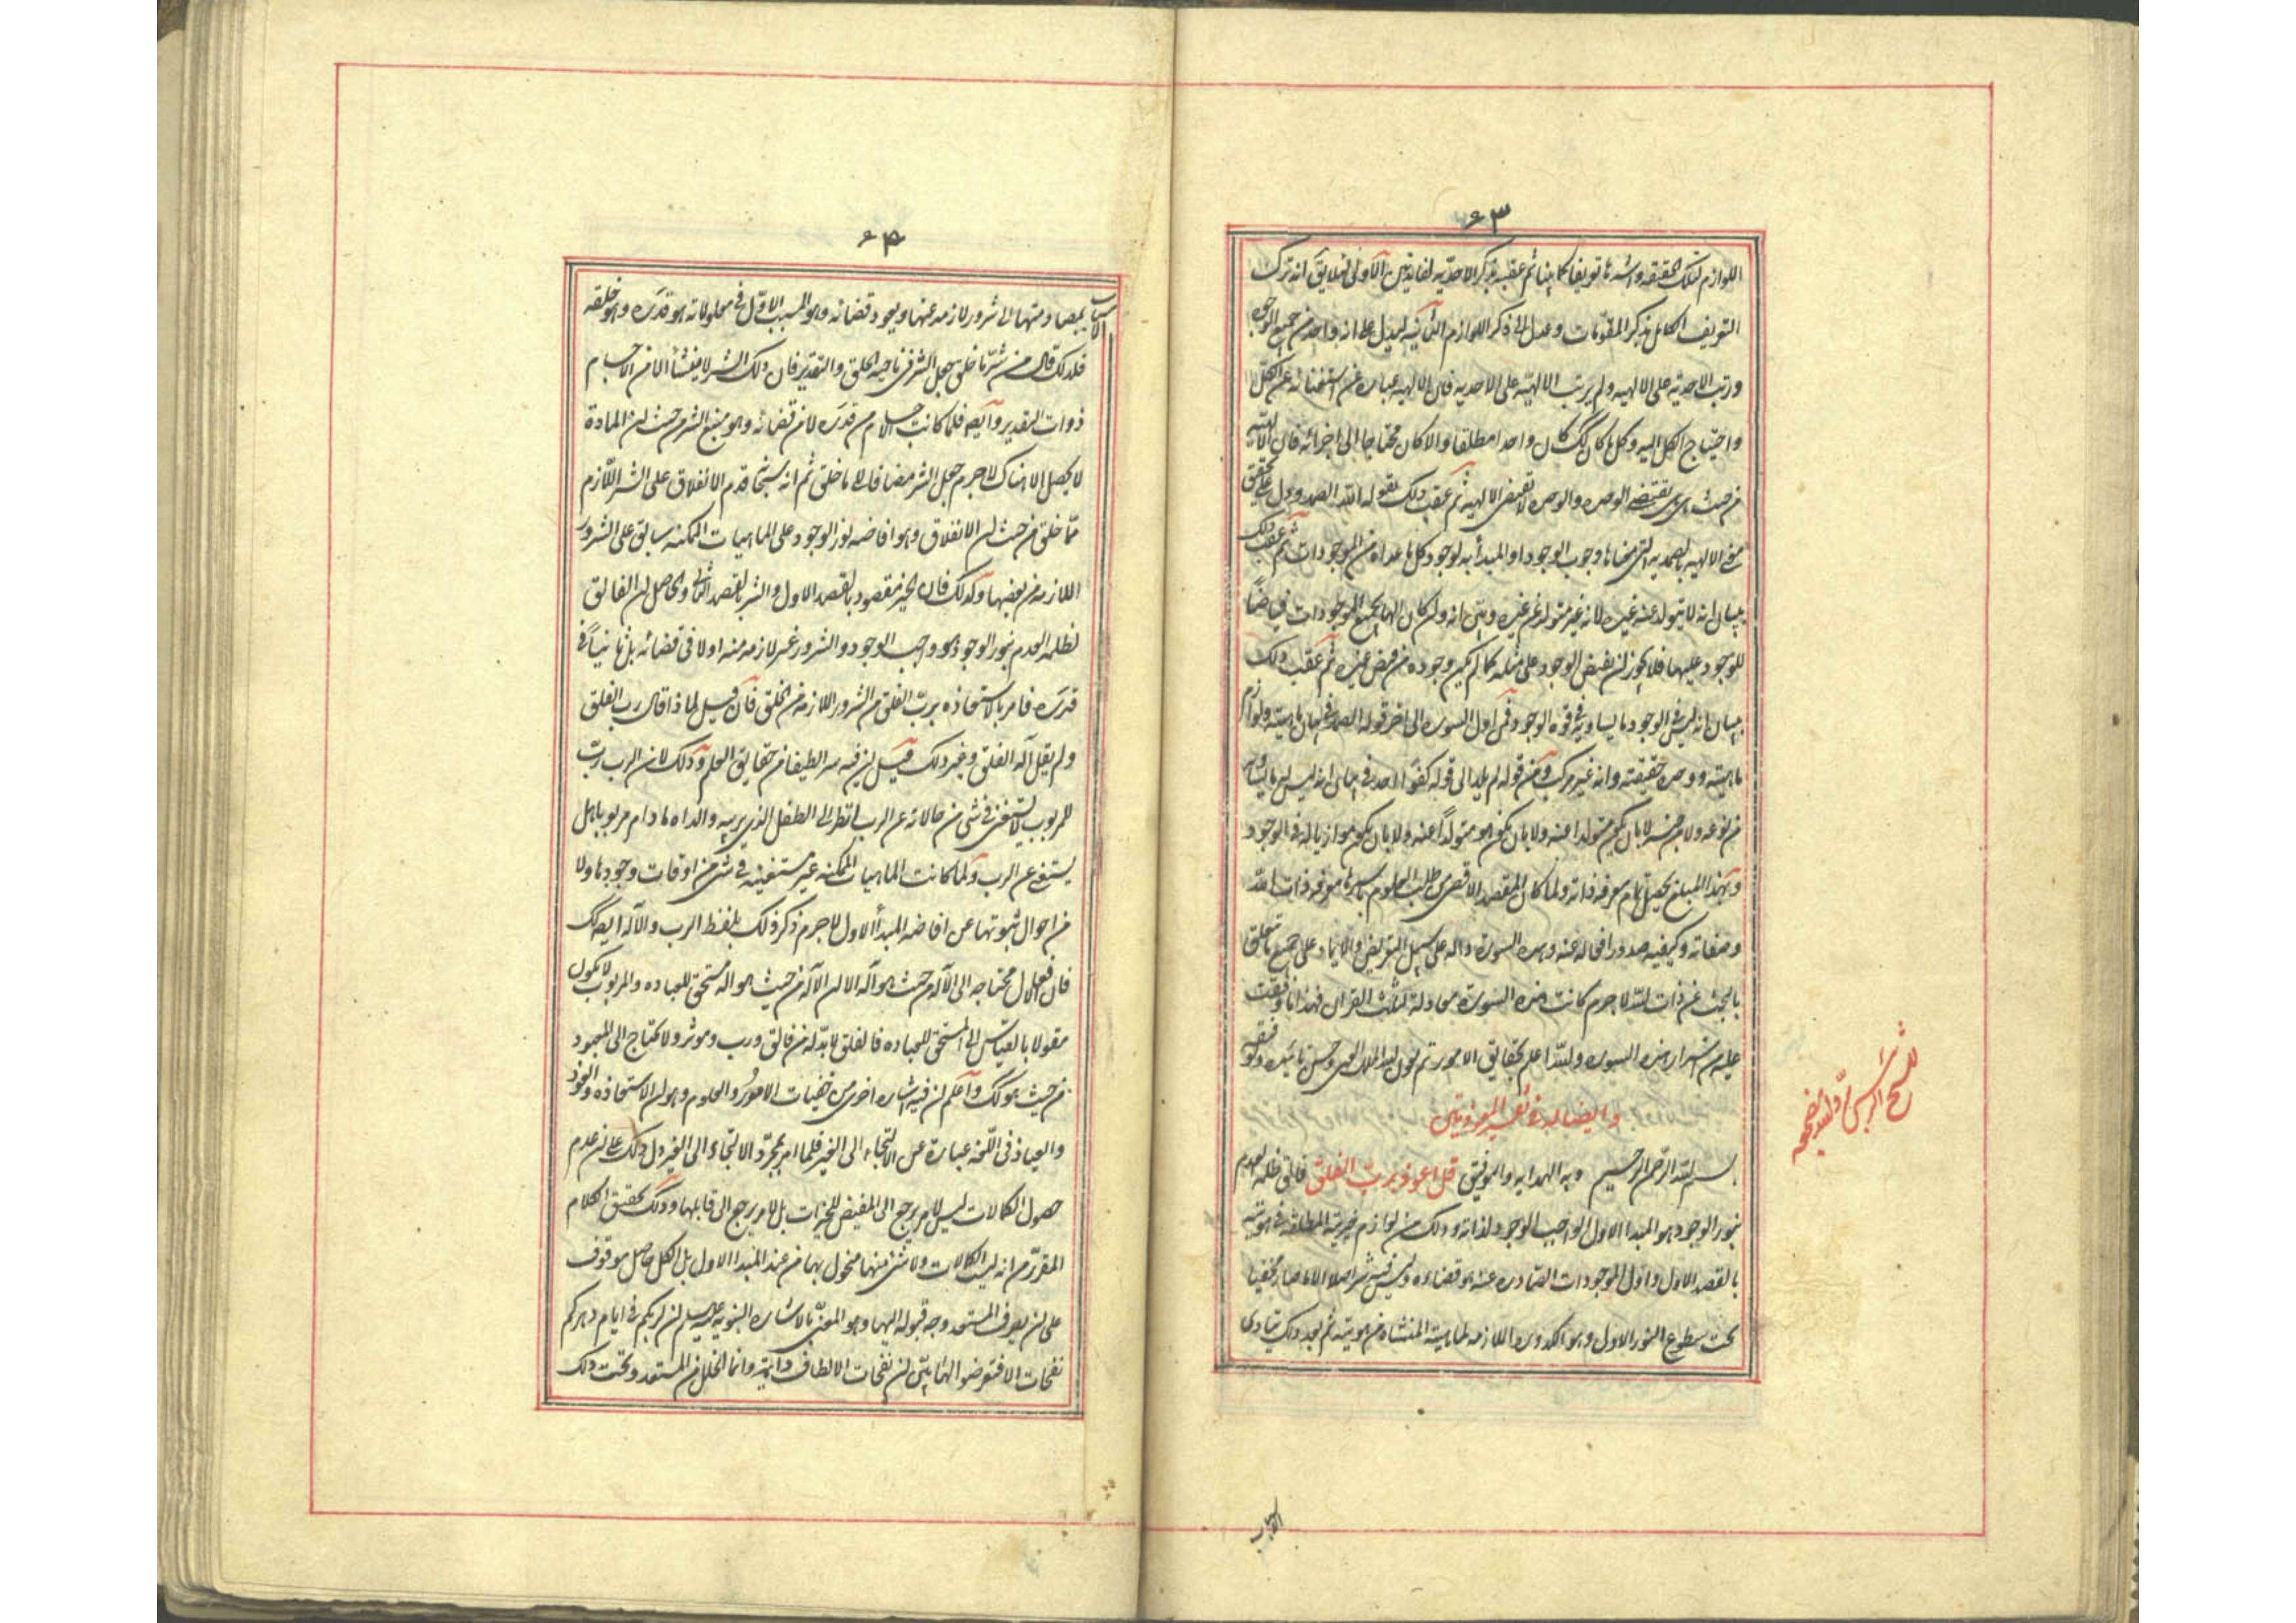 ۶۳
اللوازم لتلك الحقيقة واشدها تعريفا كما بينا ثم عقبه بذكر الاحدية لفايدتين الاولى لئلا يقى انه ترك
التعريف الكامل بذكر المقومات وعدل الى ذكر اللوازم الثانيه ليدل على انه واحد من جميع الوجوه
ورتب الاحدية على الالهيه ولم يرتب الالهيّه على الاحديه فان الالهيه عبارة عن استغنائه عن الكل
واحتياج الكل اليه وكل ما كان كك كان واحدا مطلقا والا كان محتاجا الى اجزائه فان الالهيه
من حيث هى هى تقتضى الوحده والوحده لا تقتضى الالهيه ثم عقب ذلك بقوله الله الصمد ودل على تحقيق
معنى الالهيه بالصمديه التى معناها وجوب الوجود او المبدأيه لوجود كل ما عداه من الموجودات ثم عقب ذلك
ببيان انه لا يتولد عنه غيره لانه غير متولد عن غيره وبين انه وان كان الها لجميع الموجودات فياضاً
للوجود عليها فلا يجوز ان يفيض الوجود على مثله كما لم يكن وجوده من فيض غيره ثم عقب ذلك
ببيان انه ليس فى الوجود ما يساويه فى قوة الوجود فمن اول السورة الى اخر قوله الصمد فى بيان ماهيته ولوازم
ماهيته ووحدة حقيقته وانه غير مركب ومن قوله لم يلد الى قوله كفوًا احد فى بيان انه ليس له ما يساويه
من نوعه ولا من جنسه لا بان يكون متولدا عنه ولا بان يكون هو متولدًا عنه ولا بان يكون موازيا له فى الوجود
وبهذا المبلغ يحصل تمام معرفة ذاته ولما كان المقصد الاقصى من طلب العلوم باسرها معرفة ذات الله
وصفاته وكيفيه صدور افعاله عنه وهذه السورة داله على سبيل التعريض والايماء على جميع ما يتعلق
بالبحث عن ذات الله لا جرم كانت هذه السورة معادلة لثلث القران فهذا ما وقفت
عليه من اسرار هذه السورة والله اعلم بحقايق الامور تم بعون الله الملك وحسن تاييده وتوفيقه
وايضا له فى تفسير المعوذتين
بسم الله الرّحمن الرّحيم وبه الهدايه والتوفيق قل اعوذ بربّ الفلق فالق ظلمة العدم
بنور الوجود هو المبدا الاول الواجب الوجود لذاته وذلك من لوازم خيريته المطلقه فى هويته
بالقصد الاول واول الموجودات الصّادره عنه هو قضاؤه وليس فيه شر اصلا الا ما صار مخفيا
تحت سطوع النور الاول وهو الكدوره اللازمه لماهيته المنشاه من هويته ثم بعد ذلك تتادى
الاسباب
للشيخ الرئيس
۶۴
الاسباب بمصادمتها الى شرور لازمه عنها وبعود قضائه وهو المسبب الاول فى معلولاته هو قدره وهو خلقه
فلذلك قال من شرّ ما خلق جعل الشر فى ناحية الخلق والتقدير فان ذلك الشر لا ينشأ الا من الاجسام
ذوات التقدير وايضه فلما كانت الاجسام من قدره لا من قضائه وهو منبع الشر من حيث ان المادة
لا يحصل الا هناك لا جرم جعل الشر مضافا الى ما خلق ثم انه سبحانه قدم الانفلاق على الشر اللازم
ممّا خلق من حيث ان الانفلاق وهو افاضه نور الوجود على الماهيات الممكنه سابق على الشرور
اللازمه من بعضها وكذلك فان الخير مقصود بالقصد الاول والشر بالقصد الثانى والحاصل ان الفالق
لظلمة العدم بنور الوجود هو واجب الوجود والشرور غير لازمه منه اولا فى قضائه بل ثانياً فى
قدره فامر بالاستعاذه بربّ الفلق من الشرور اللازمه من الخلق فان قيل لماذا قال رب الفلق
ولم يقل اله الفلق وغير ذلك قيل ان فيه سر الطيفا من حقايق العلم وذلك لان الرب ربّ
للمربوب والمربوب لا يستغنى فى شئ من حالاته عن الرب انظر الى الطفل الذى يربيه والداه ما دام مربوبا هل
يستغنى عن الرب ولما كانت الماهيات الممكنه غير مستغنيه فى شئ من اوقات وجودها ولا
من احوال ثبوتها عن افاضه المبدأ الاول لا جرم ذكر ذلك بلفظ الرب والاله ايضه كك
فان الافعال محتاجه الى الاله من حيث هو اله الا ان الاله من حيث هو اله مستحق للعباده والمربوب لا يكون
مقولا بالقياس الى المستحق للعباده فالفلق لا بدّ له من فالق ورب وموثر ولا يحتاج الى المعبود
من حيث هو كك واعلم ان فيه اشاره اخرى من خفيات الامور والعلوم وهو ان الاستعاذه والعوذ
والعياذ فى اللغه عبارة عن الالتجاء الى الغير فلما امر بمجرّد الالتجاء الى الغير دل ذلك على ان عدم
حصول الكمالات ليس لامر يرجع الى المفيض للخيرات بل لامر يرجع الى قابلها وذلك تحقيق الكلام
المقرّر من انه ليس الكمالات ولا شئ منها مبخول بها من عند المبدا الاول بل الكل حاصل موقوف
على ان يصرف المستعد وجه قبوله اليها وهو المعنىّ بالاشاره النبويه عليه السلم ان لربكم فى ايام دهركم
نفحات الا فتعرضوا لها بيّن ان نفحات الالطاف دايمه وانما الخلل من المستعد وتحت ذلك